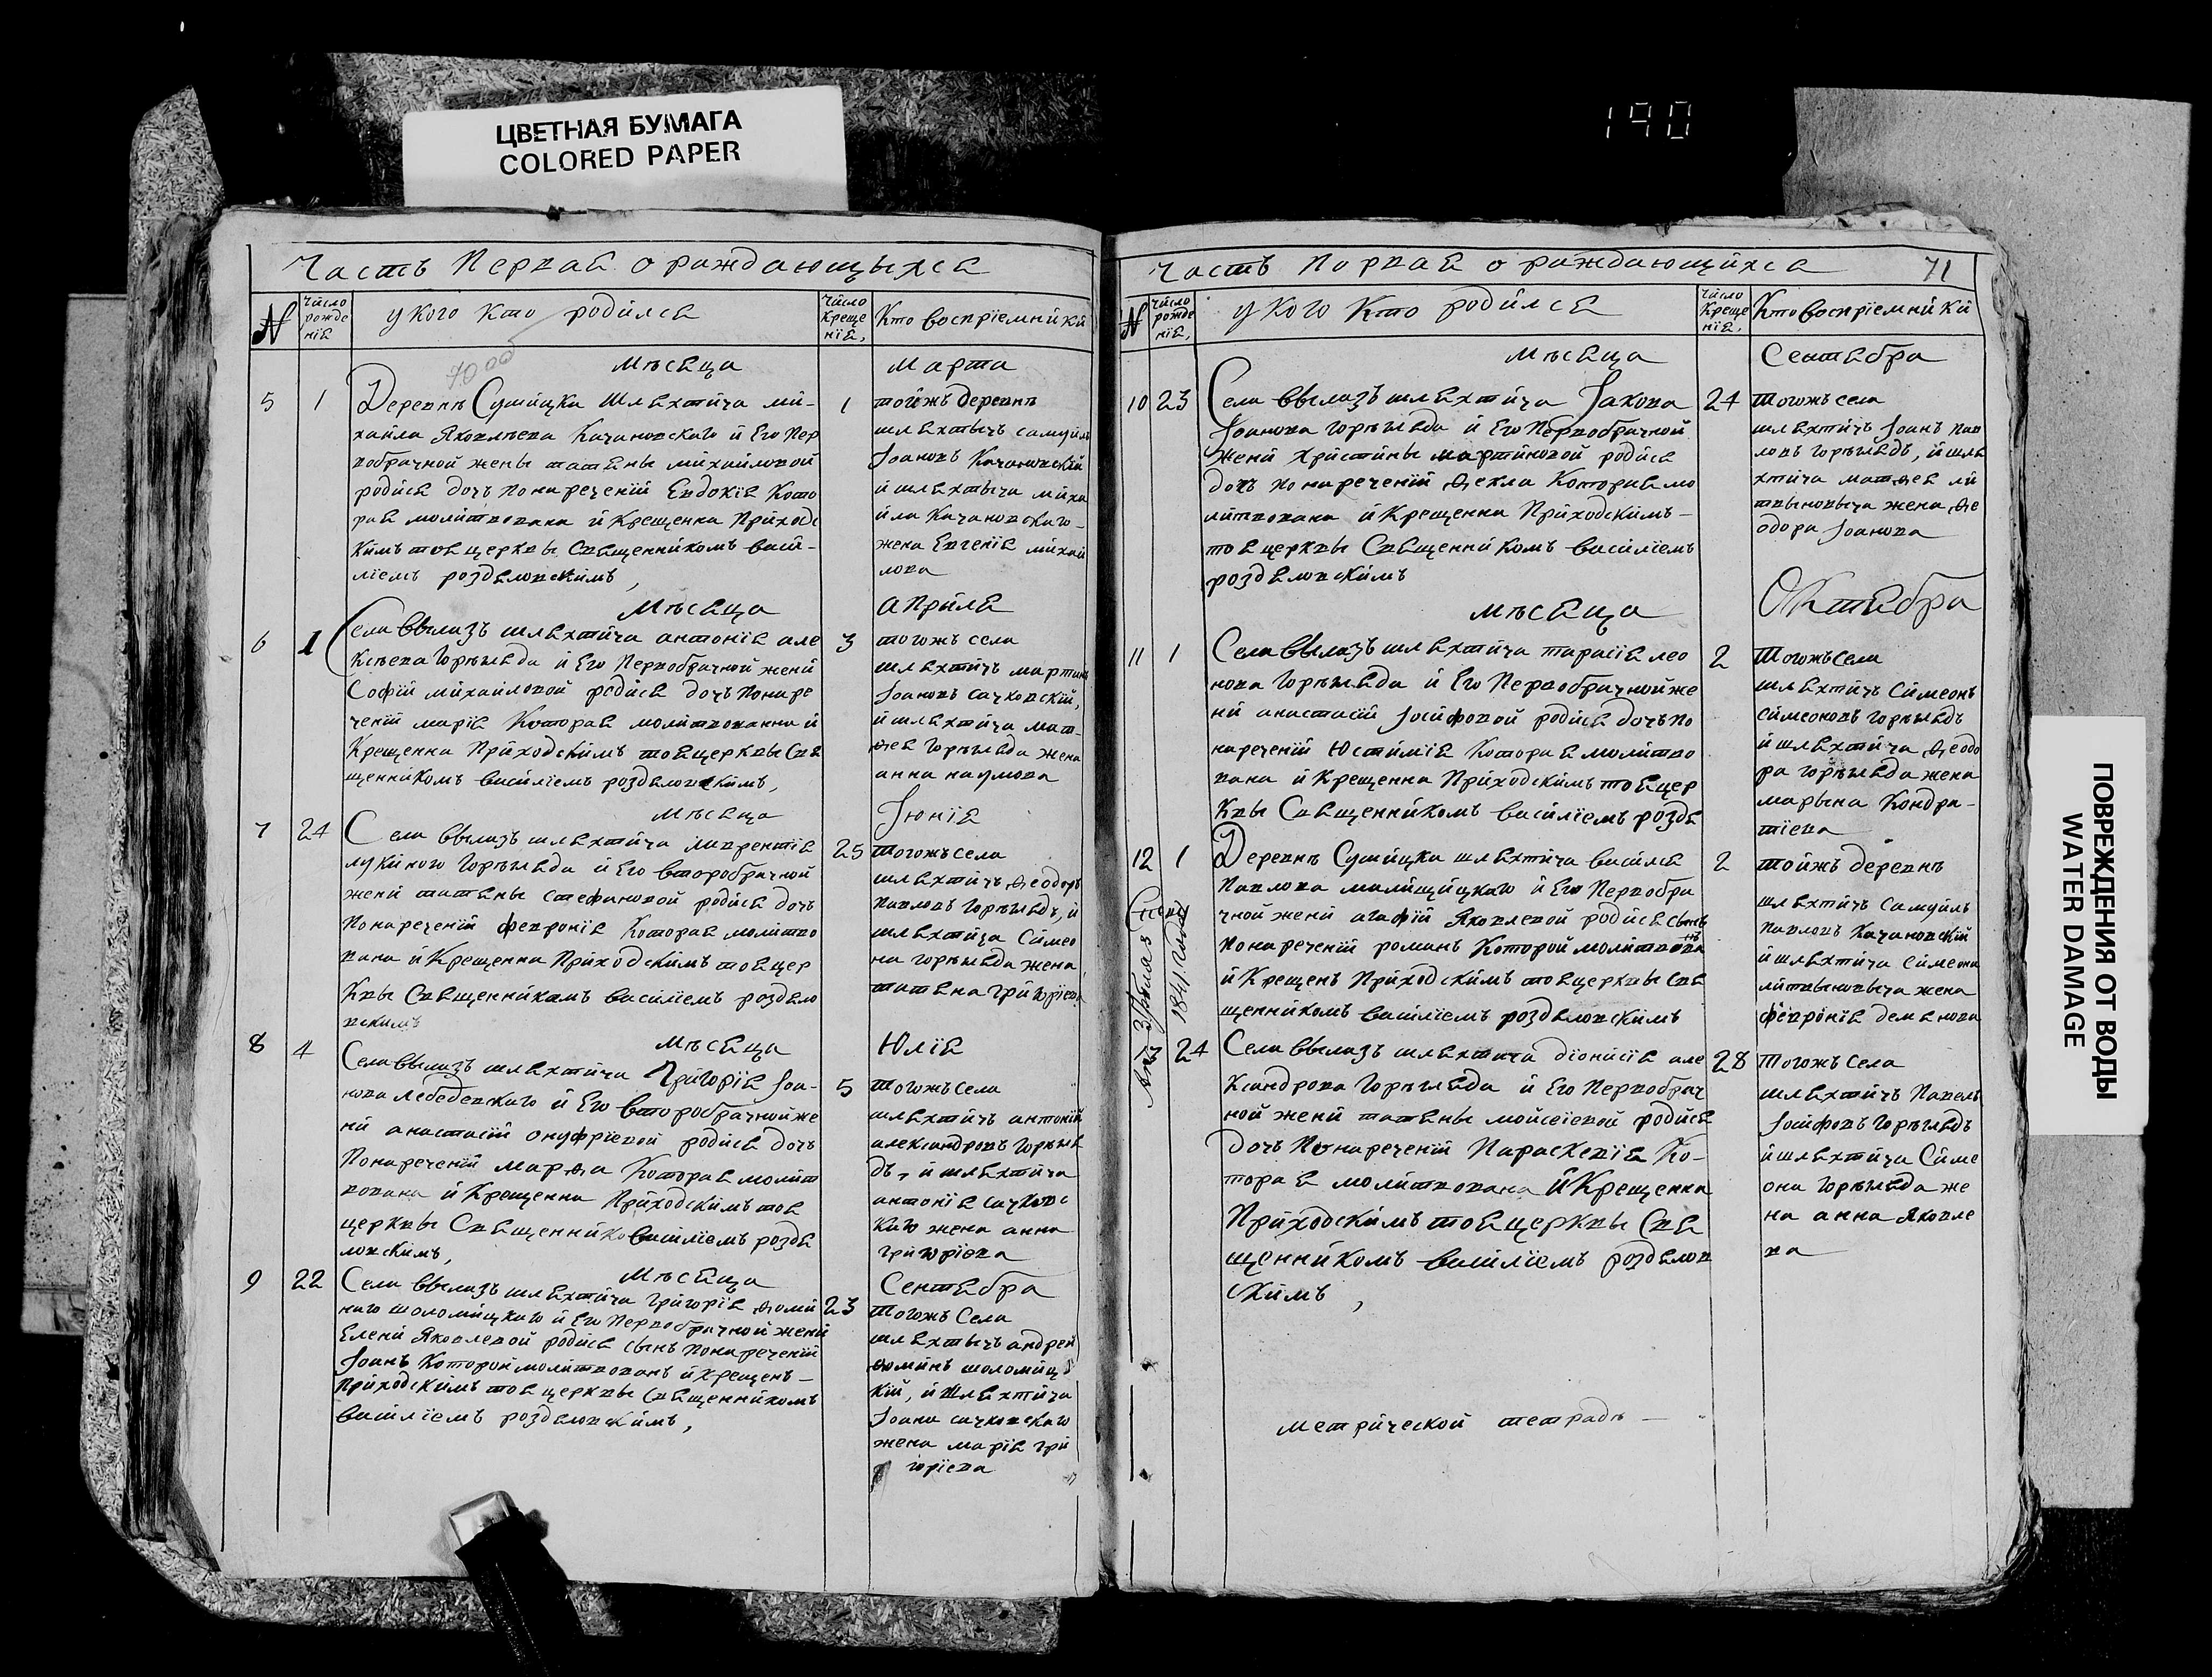 ЦВЕТНАЯ БУМАГА
COLORED PAPER
190
Часть Первая о раждающыхся
N
число рожде нія
у кого кто родился
число креще нія,
Кто воспріемники
Мѣсяца
Марта
5 1
Деревнѣ Сушицка шляхтича ми-
хайла Яковлѣева Качановского и Его Пер
вобрачной жены татяны михайловой
родися дочь по наречений Евдокія Кото
рая молитвована и Крещенна Приходс
кимъ тоя церквы Священникомъ васи-
ліемъ роздяловскимъ,
1
тойжъ деревнѣ
шляхтычъ самуилъ
Іоановъ Качановскій
и шляхтыча миха
йла Качановскаго-
жена Евгенія михай
лова
Мѣсяца
априля
6 1
Села Ввылазъ шляхтича антонія але
ксѣева Горѣгляда и Его Первобрачной жени
Софіи михайловой родися дочь по наре
ченіи марія Которая молитвованна и
Крещенна Приходскимъ тоя церквы Свя
щенникомъ василіемъ роздяловскимъ,
3
тогожъ села
шляхтичъ мартинъ
Іоановъ сачковскій,
и шляхтича мат-
ѳея Горѣгляда жена
анна наумова
Мѣсяца
Іюнія
7 24
Села Ввылазъ шляхтича лаврентія
лукиного Горѣгляда и Его второбрачной
жени татяны стефановой родися дочь
По нареченій февронія Которая молитво
вана и Крещенна Приходскимъ тоя цер
квы Священникамъ василіемъ роздяло
вскимъ
25
тогожъ Села
шляхтичъ ѳеодоръ
Павловъ Горѣглядъ, и
шляхтича Симео
на горѣгляда жена
татяна григоріева
Мѣсяца
Юлія
8 4
Села Ввылазъ шляхтича Григорія Іоа-
нова Лебедевского и Его второбрачной же
ни анастасіи онуфріевой родися дочь
По нареченій марѳа Которая молит
вована и Крещенна Приходскимъ тоя
церквы Священнико василіемъ роздя
ловскимъ,
5
тогожъ Села
шляхтичъ антоній
александровъ Горѣгля
дъ, и шляхтича
антонія сачковс
каго жена анна
григоріева
Мѣсяца
Сентября
9 22
Села Ввылазъ шляхтича Григорія ѳоми
ного шоломицкаго и Его Первобрачной жени
Елени Яковлевой родися сынъ По нареченій
Іоанъ Которой молитвованъ и Крещенъ -
Приходскимъ тоя церквы Священникомъ
василіемъ роздяловскимъ,
23
тогожъ Села
шляхтычъ андрей
ѳоминъ шоломицъ
кій, и Шляхтича
Іоана сачковскаго
жена марія гри
горіева
Часть Первая о раждающихся
71
N
число рожде нія,
у кого кто родился
число креще нія,
Кто воспріемники
Мѣсяца
Сентября
10 23
Села Ввылазъ шляхтича Іакова
Іоанова Горѣгляда и Его Первобрачной
жени христины мартиновой родися
дочь по нареченій ѳекла Которая мо
литвована и Крещенна Приходскимъ-
тоя церквы Священникомъ василіемъ
роздяловскимъ
24
тогожъ села
шляхтичъ Іоанъ Пав
ловъ Горѣглядъ, и шля
хтича матѳея ли
твыновыча жена ѳе
одора Іоанова
Мѣсяца
Октября
11 1
Села Ввылазъ шляхтича тарасія лео
нова Горѣгляда и Его Первобрачной же
ни анастасій Іосифовой родися дочь по
нареченій Юстимія Которая молитво
вана и Крещенна Приходскимъ тоя цер
квы Священникомъ василіемъ роздя
2
тогожъ Села
шляхтичъ Симеонъ
симеоновъ Горѣглядъ
и шляхтича ѳеодо
ра горѣгляда жена
марына Кондра-
тіева
12 1
Деревнѣ Сушицка шляхтича василя
Павлова малищицкаго и Его Первобра
чной жени агафіи Яковлевой родися сынъ
По нареченій романъ Которой молитвованъ
и Крещенъ Приходскимъ тоя церквы Свя
щенникомъ василіемъ роздяловскимъ
2
тойжъ деревнѣ
шляхтичъ Самуилъ
Павловъ Качановскій
и шляхтича Симеона
литвыновыча жена
февронія демянова
1841. года
13 24
Села Ввылазъ шляхтича діонисія але
ксандрова Горѣгляда и Его Первобрач
ной жени татяны мойсеіевой родися
дочь По нареченій Параскевія Ко-
торая молитвована и Крещенна
Приходскимъ тоя церквы Свя
щенникомъ василіемъ роздялов
скимъ,
28
тогожъ Села
шляхтичъ Павелъ
Іосифовъ Горѣглядъ
и шляхтича Симе
она Горѣгляда же
на анна Яковле
ва
метрической тетрадѣ —
ПОВРЕЖДЕНИЯ ОТ ВОДЫ
WATER DAMAGE